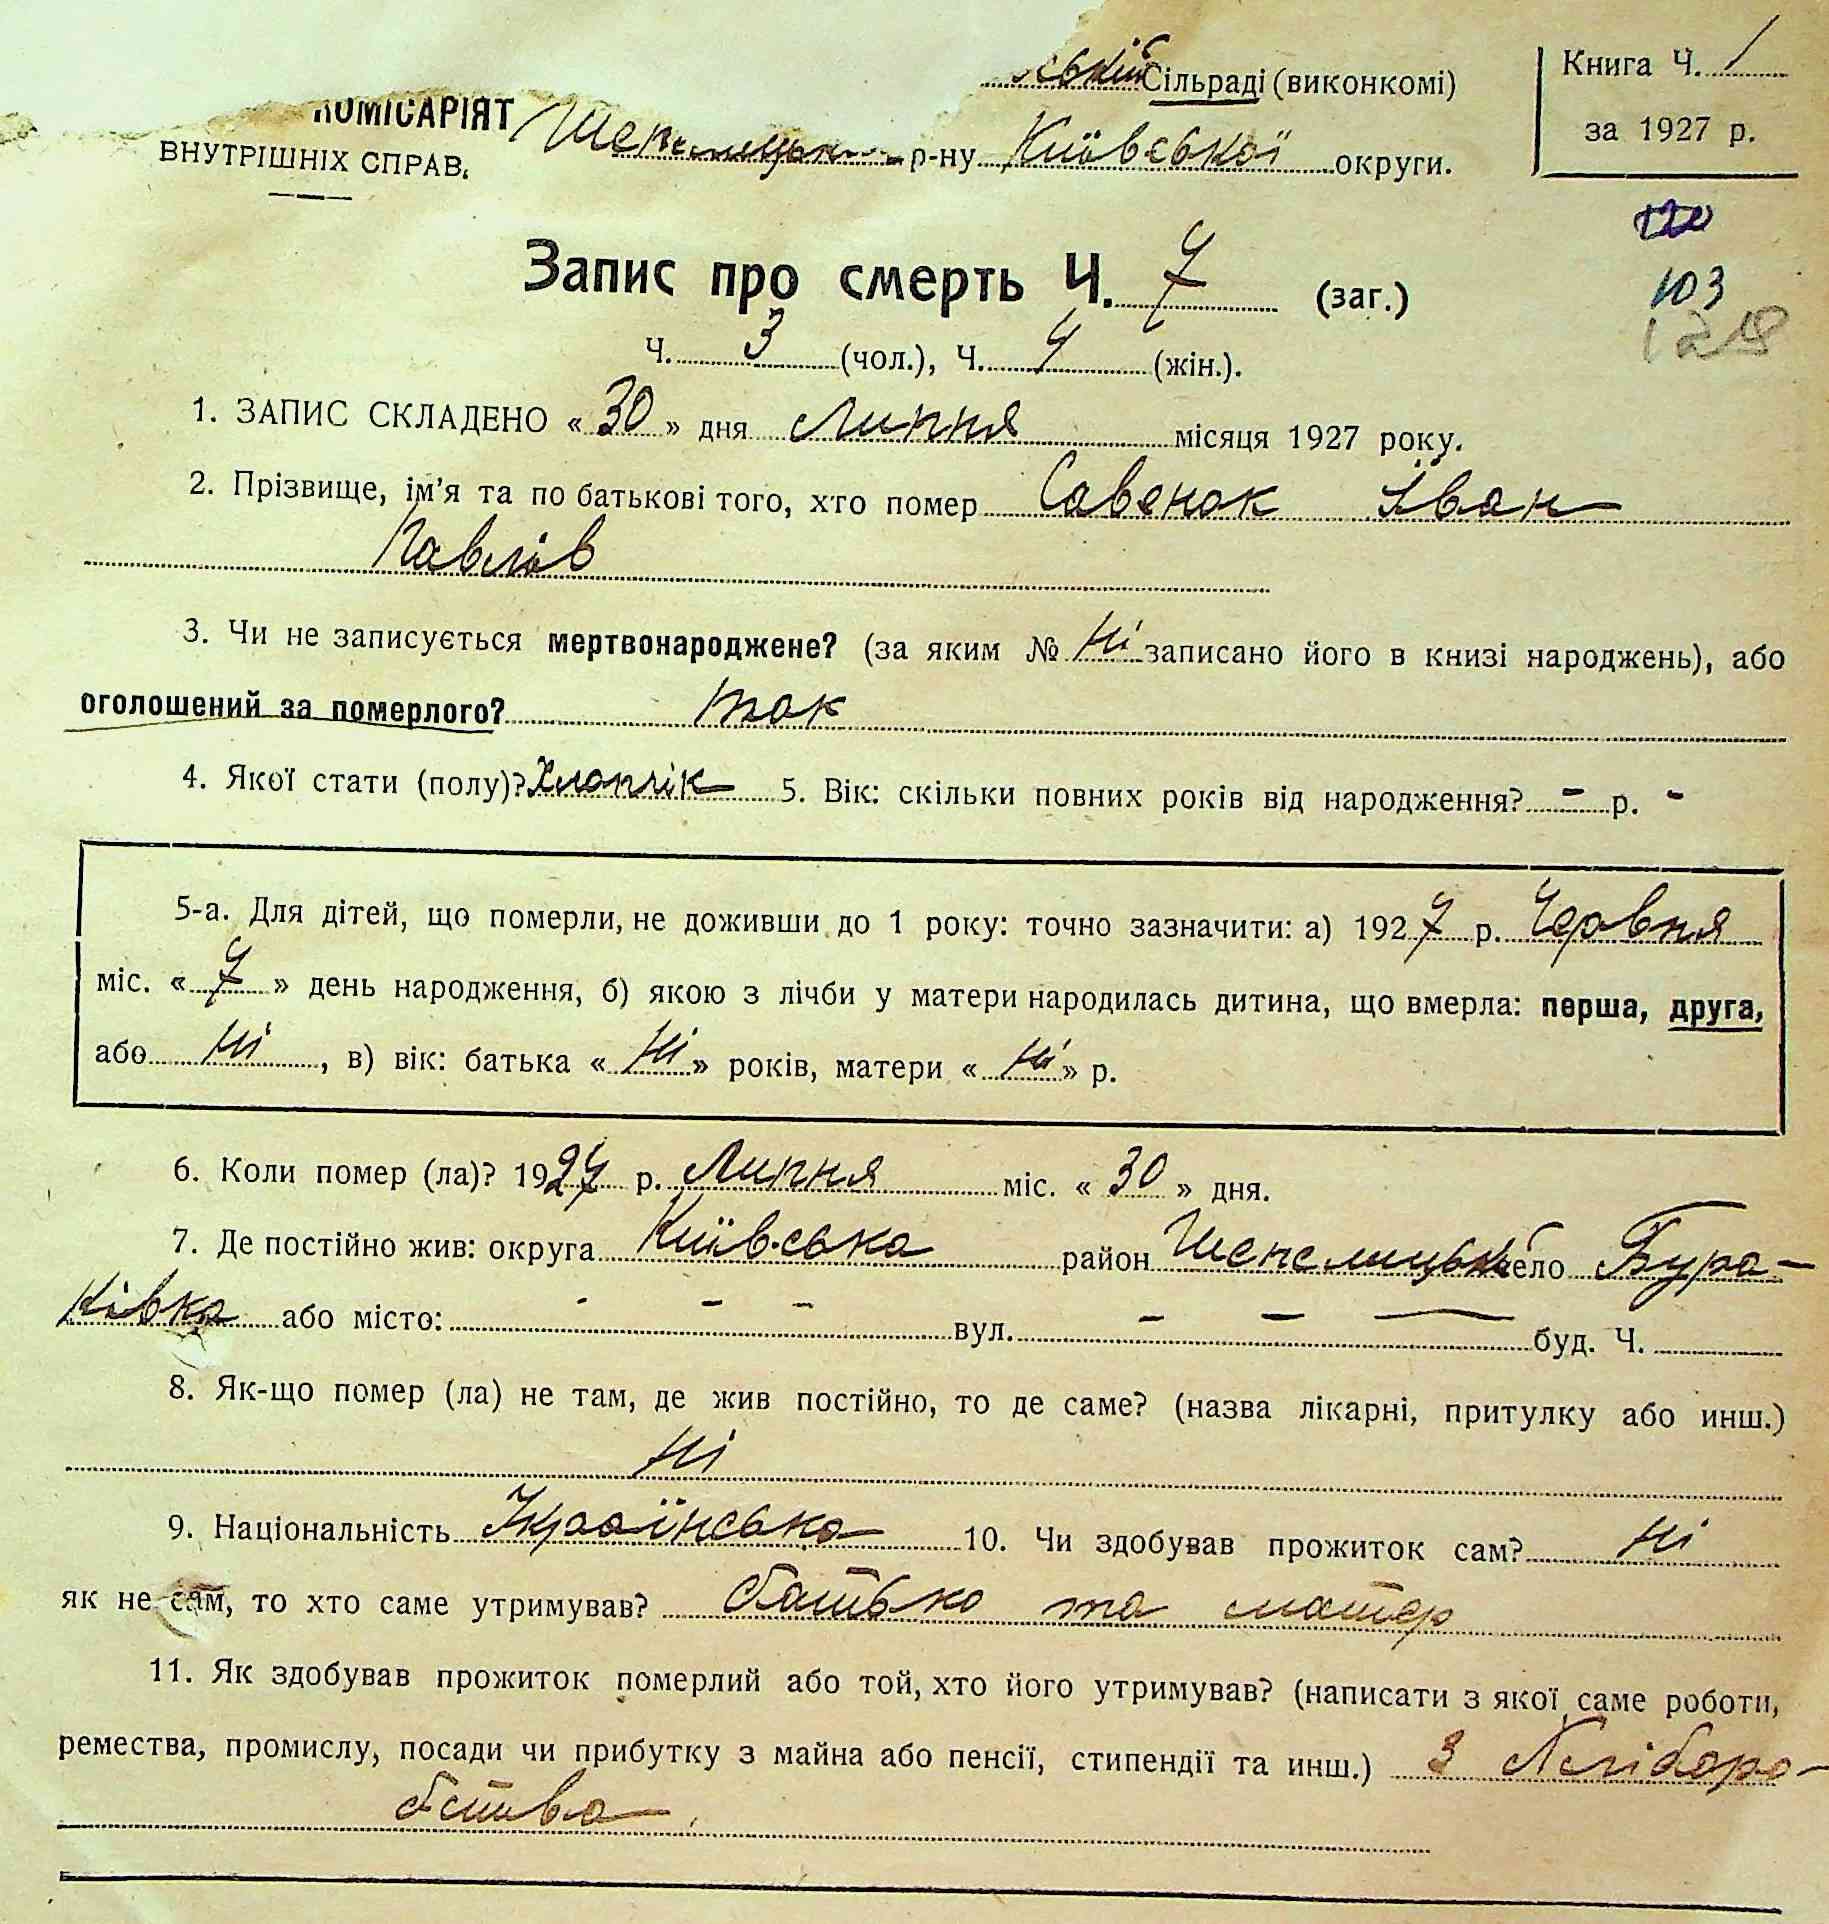 ській Сільраді (виконкомі)
Книга Ч. 1
КОМІСАРІЯТ
ВНУТРІШНІХ СПРАВ.
Шепелицьк р-ну Київської округи.
за 1927 р.
103
Запис про смерть Ч. 7 (заг.)
Ч. 3 (чол.), Ч. 4 (жін.).
1. ЗАПИС СКЛАДЕНО «30» дня Липня місяця 1927 року.
2. Прізвище, ім'я та по батькові того, хто помер Савенок Іван
Павлів
3. Чи не записується мертвонароджене? (за яким № Ні записано його в книзі народжень), або
оголошений за померлого? так
4. Якої стати (полу)? Хлопчік 5. Вік: скільки повних років від народження? - р. -
5-а. Для дітей, що померли, не доживши до 1 року: точно зазначити: а) 1927 р. Червня
міс. «7» день народження, б) якою з лічби у матери народилась дитина, що вмерла: перша, друга,
або Ні, в) вік: батька «Ні» років, матери «Ні» р.
6. Коли помер (ла)? 1927 р. Липня міс. «30» дня.
7. Де постійно жив: округа Київська район Шепелицьк село Бура-
ківка або місто: - - - вул. - - - буд. Ч.
8. Як-що помер (ла) не там, де жив постійно, то де саме? (назва лікарні, притулку або инш.)
Ні
9. Національність Українська 10. Чи здобував прожиток сам? Ні
як не сам, то хто саме утримував? батько та матер
11. Як здобував прожиток померлий або той, хто його утримував? (написати з якої саме роботи,
ремества, промислу, посади чи прибутку з майна або пенсії, стипендії та инш.) З Хліборо-
бства